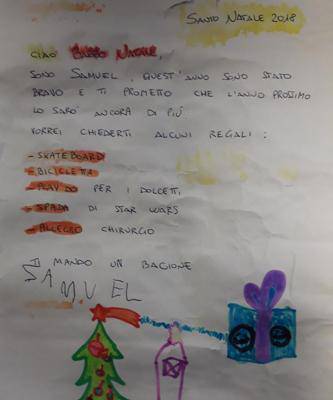 SANTO NATALE 2018
CIAO BABBO NATALE,
SONO SAMUEL, QUEST'ANNO SONO STATO
BRAVO E TI PROMETTO CHE L'ANNO PROSSIMO
LO SARO' ANCORA DI PIÙ
VORREI CHIEDERTI ALCUNI REGALI:
- SKATEBOARD
- BICICLETTA
- PLAY DO PER I DOLCETTI
- SPADA DI STAR WARS
- ALLEGRO CHIRURGIO
TI MANDO UN BACIONE
SAMUEL